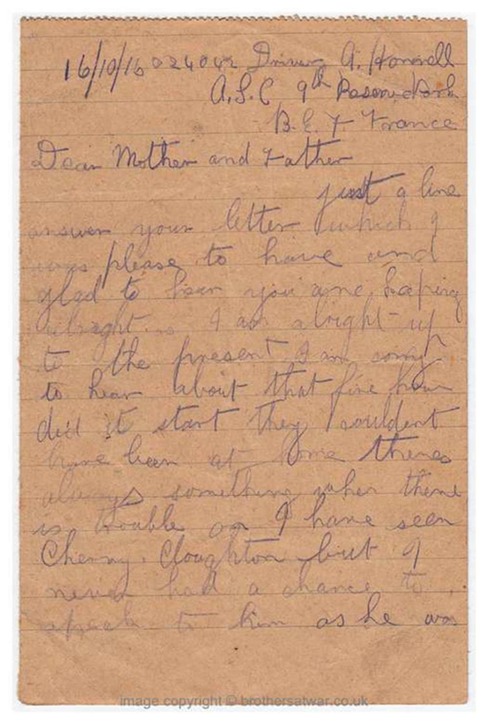 16/10/16 024042 Driver A.
A.S.C 9th Reserve Park
B.E.F. France
Dear Mother and Father
just a line
answer your letter which I
was please to have and
glad to hear you are keeping
alright I am alright up
to the present I am sorry
to hear about that fire how
did it start they couldent
have been at home theres
always something when there
is trouble on I have seen
Cherry Cloughton but I
never had a chance to
speak to him as he was
image copyright © brothersatwar.co.uk